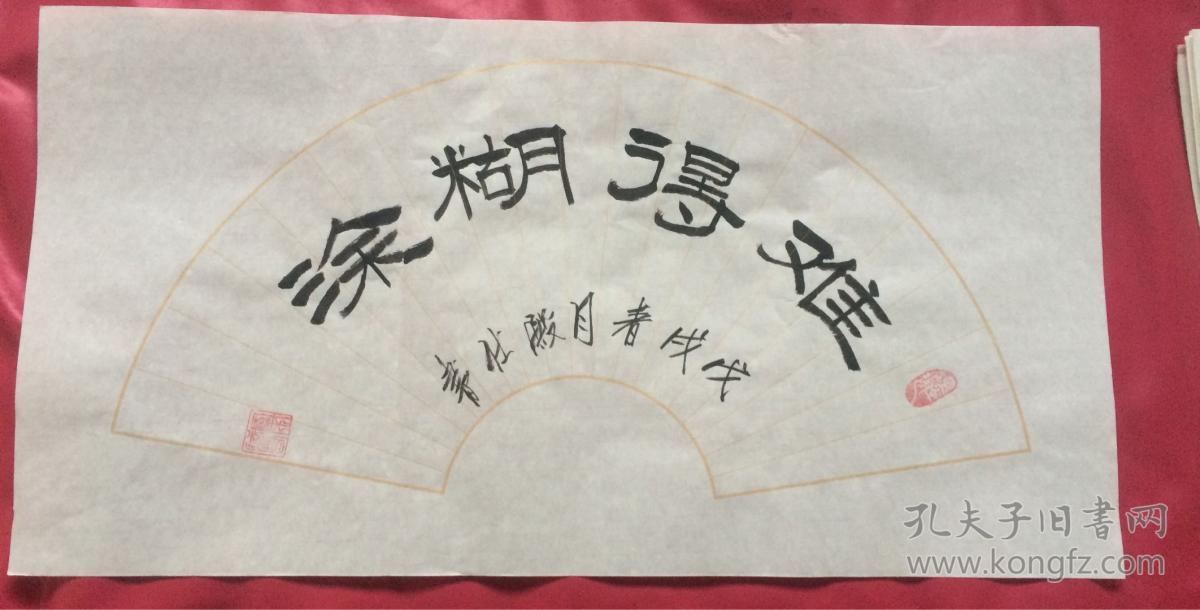 难得糊涂
戊戌春月殿仕书
孔夫子旧書网
www.kongfz.com